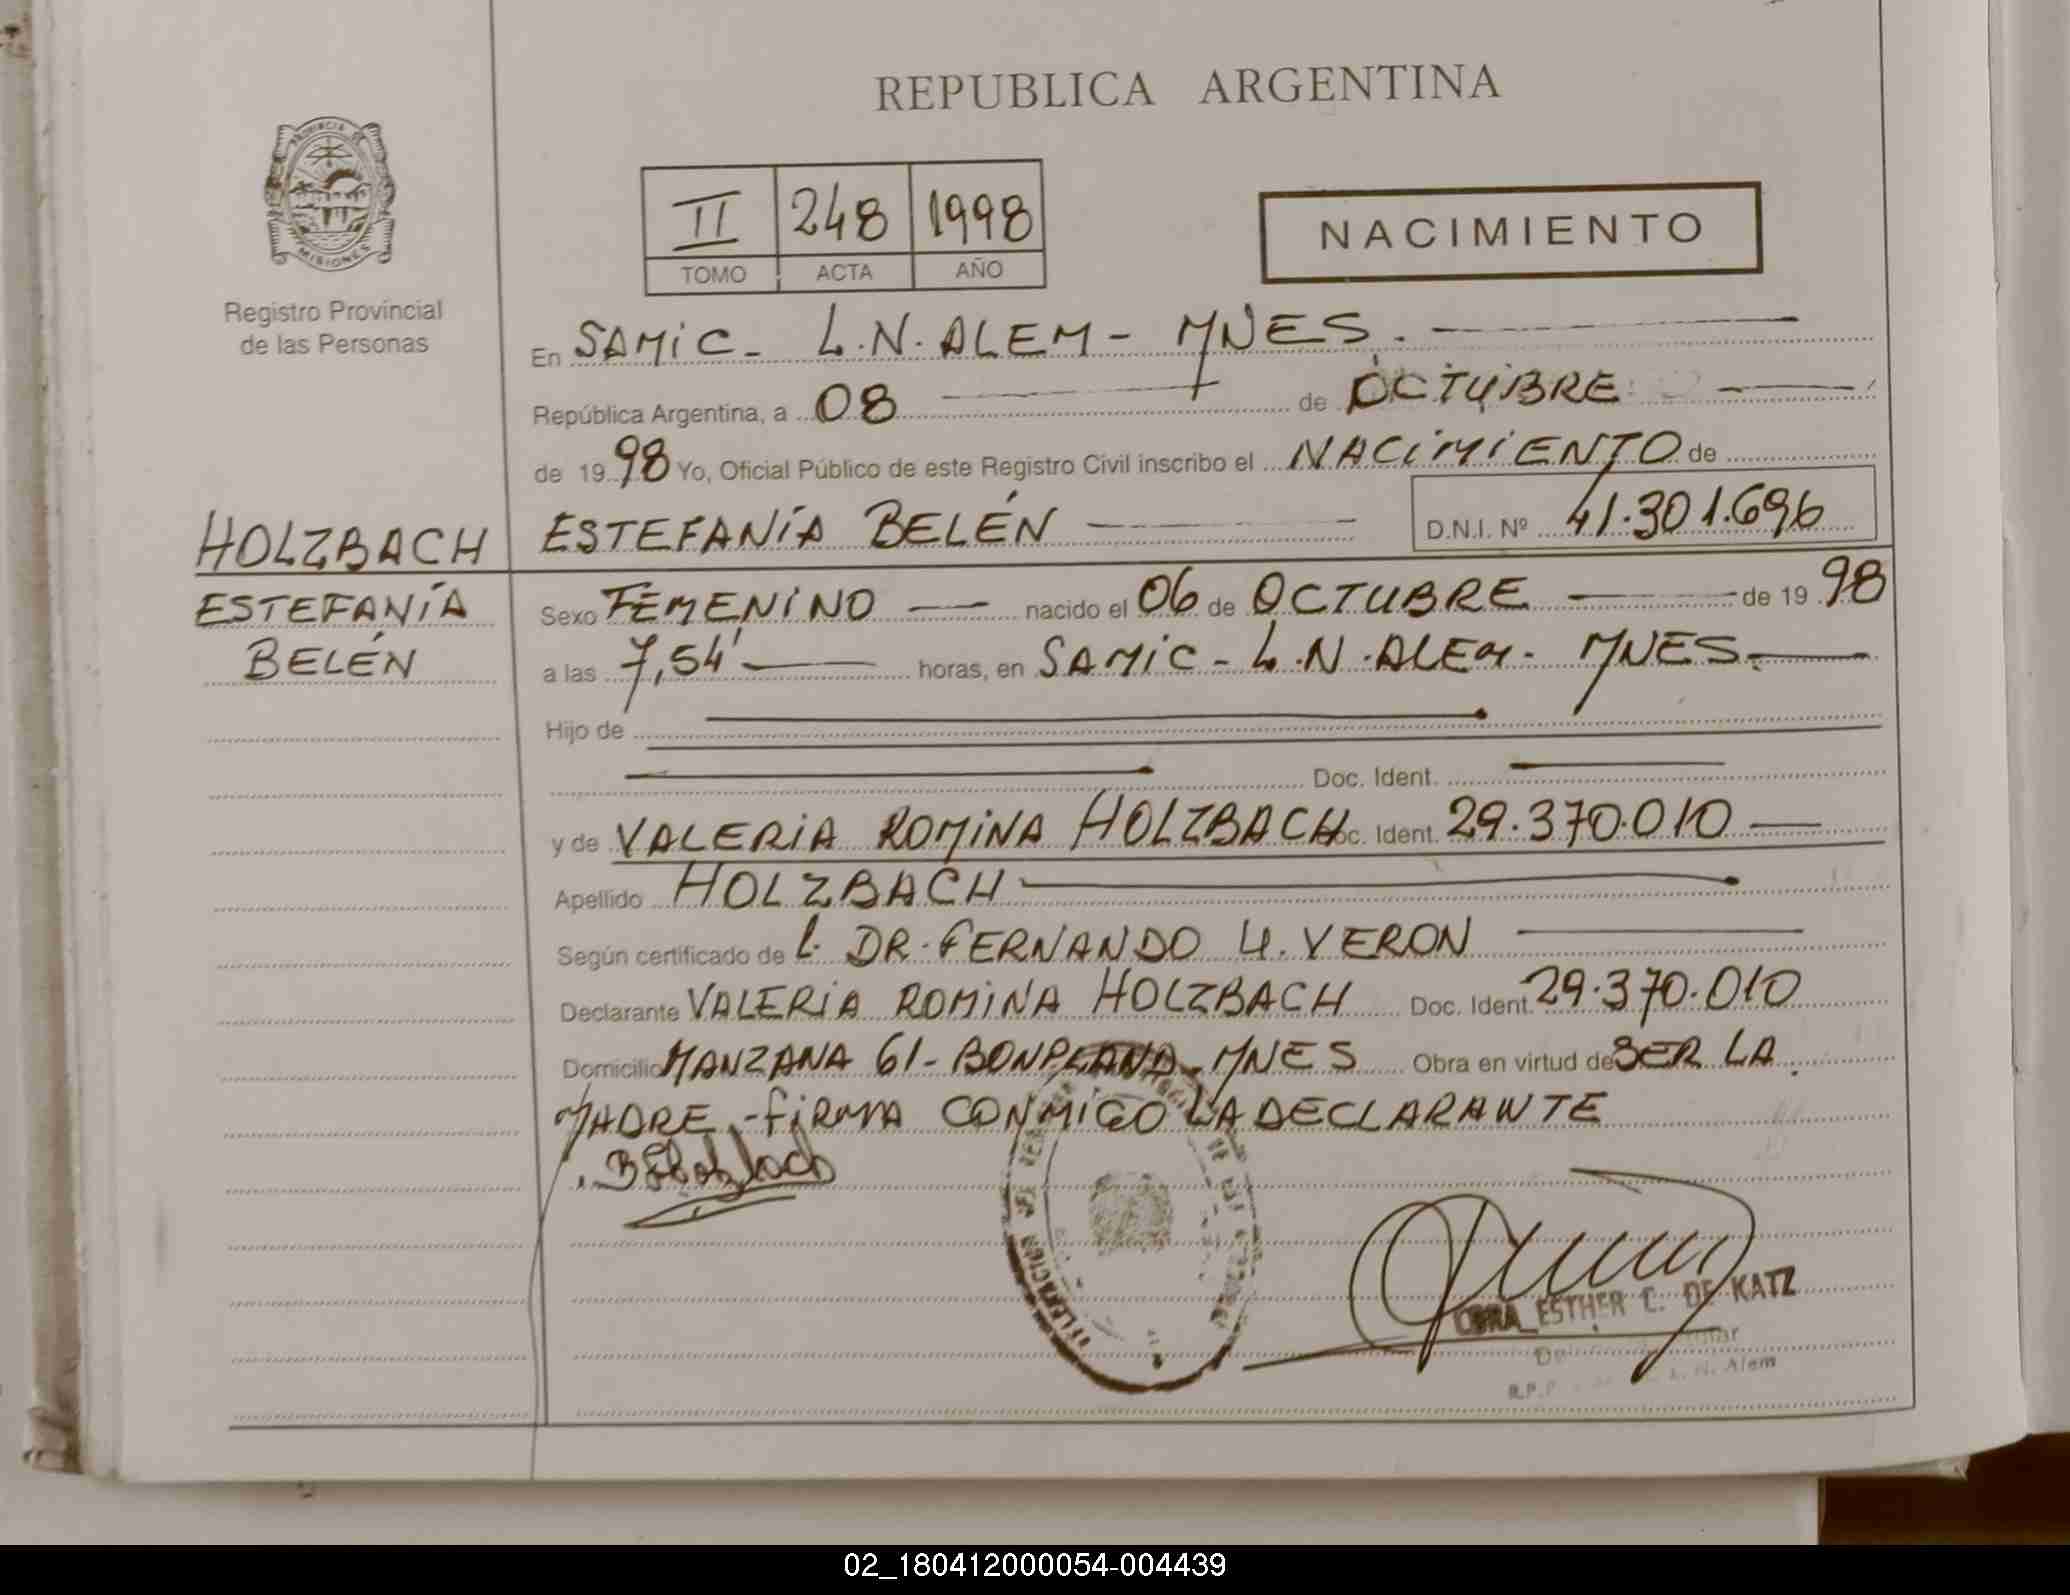 REPUBLICA ARGENTINA
PROVINCIA DE
MISIONES
Registro Provincial
de las Personas
II 248 1998
TOMO ACTA AÑO
NACIMIENTO
En SAMIC - L.N. ALEM - MNES.
República Argentina, a 08 de OCTUBRE
de 19 98 Yo, Oficial Público de este Registro Civil inscribo el NACIMIENTO de
HOLZBACH ESTEFANÍA BELÉN D.N.I. Nº 41.301.696
ESTEFANÍA Sexo FEMENINO nacido el 06 de OCTUBRE de 19 98
BELÉN a las 7,54' horas, en SAMIC - L.N. ALEM - MNES.
Hijo de
Doc. Ident.
y de VALERIA ROMINA HOLZBACH Doc. Ident. 29.370.010
Apellido HOLZBACH
Según certificado de DR. FERNANDO VERON
Declarante VALERIA ROMINA HOLZBACH Doc. Ident. 29.370.010
Domicilio MANZANA 61 - BONPLAND - MNES Obra en virtud de SER LA
MADRE - FIRMA CONMIGO LA DECLARANTE
ESTHER C. DE KATZ
L. N. Alem
02_180412000054-004439